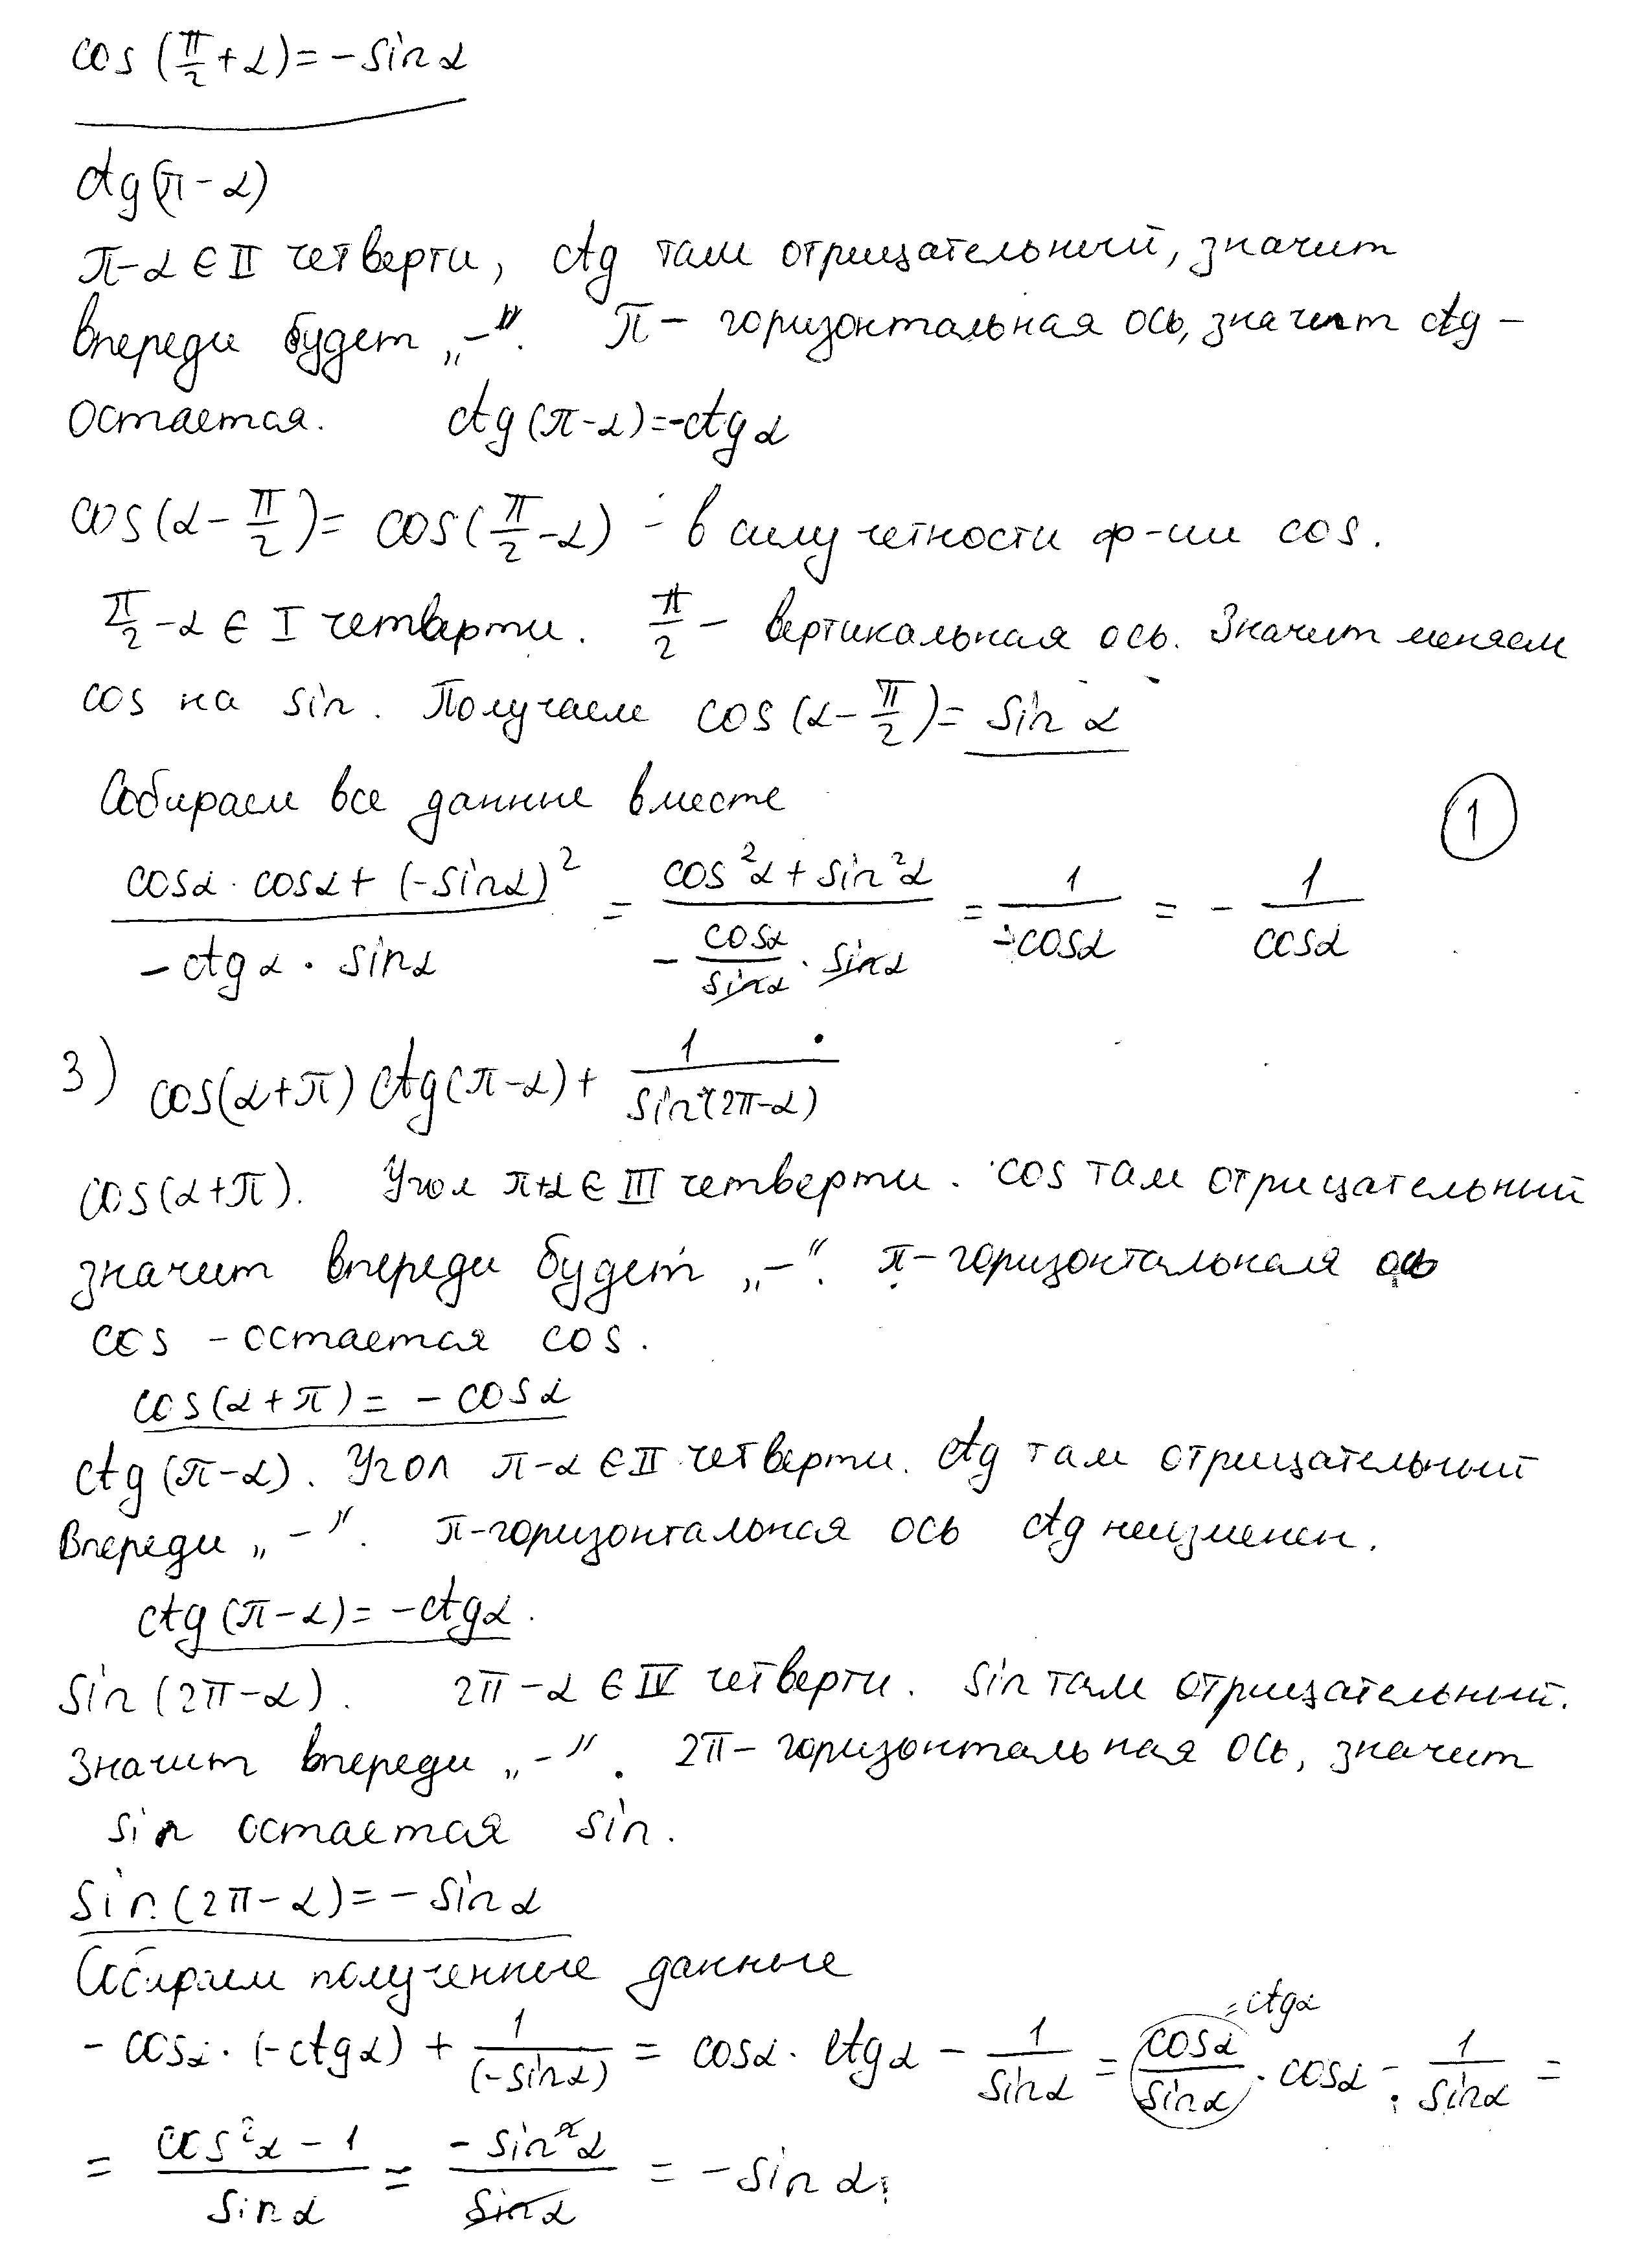 cos(π/2 + α) = - sin α
ctg(π - α)
π - α ∈ II четверти, ctg там отрицательный, значит
впереди будет „-“. π - горизонтальная ось, значит ctg -
остается. ctg(π - α) = -ctg α
cos(α - π/2) = cos(π/2 - α) - в силу четности ф-ии cos.
π/2 - α ∈ I четверти. π/2 - вертикальная ось. Значит меняем
cos на sin. Получаем cos(α - π/2) = sin α
Собираем все данные вместе
1
(cosα · cosα + (-sinα)²) / (-ctgα · sinα) = (cos²α + sin²α) / (-cosα/sinα · sinα) = 1/(-cosα) = - 1/cosα
3) cos(α+π) ctg(π-α) + 1/sin(2π-α)
cos(α+π). Угол π+α ∈ III четверти. cos там отрицательный
значит впереди будет „-“. π - горизонтальная ось
cos - остается cos.
cos(α+π) = - cosα
ctg(π-α). Угол π-α ∈ II четверти. ctg там отрицательный
Впереди „-“. π - горизонтальная ось ctg неизменен.
ctg(π-α) = -ctgα.
sin(2π-α). 2π-α ∈ IV четверти. sin там отрицательный.
Значит впереди „-“. 2π - горизонтальная ось, значит
sin остается sin.
sin(2π-α) = - sinα
Собираем полученные данные
=ctgα
- cosα · (-ctgα) + 1/(-sinα) = cosα · ctgα - 1/sinα = cosα/sinα · cosα - 1/sinα =
= (cos²α - 1)/sinα = (-sin²α)/sinα = - sinα